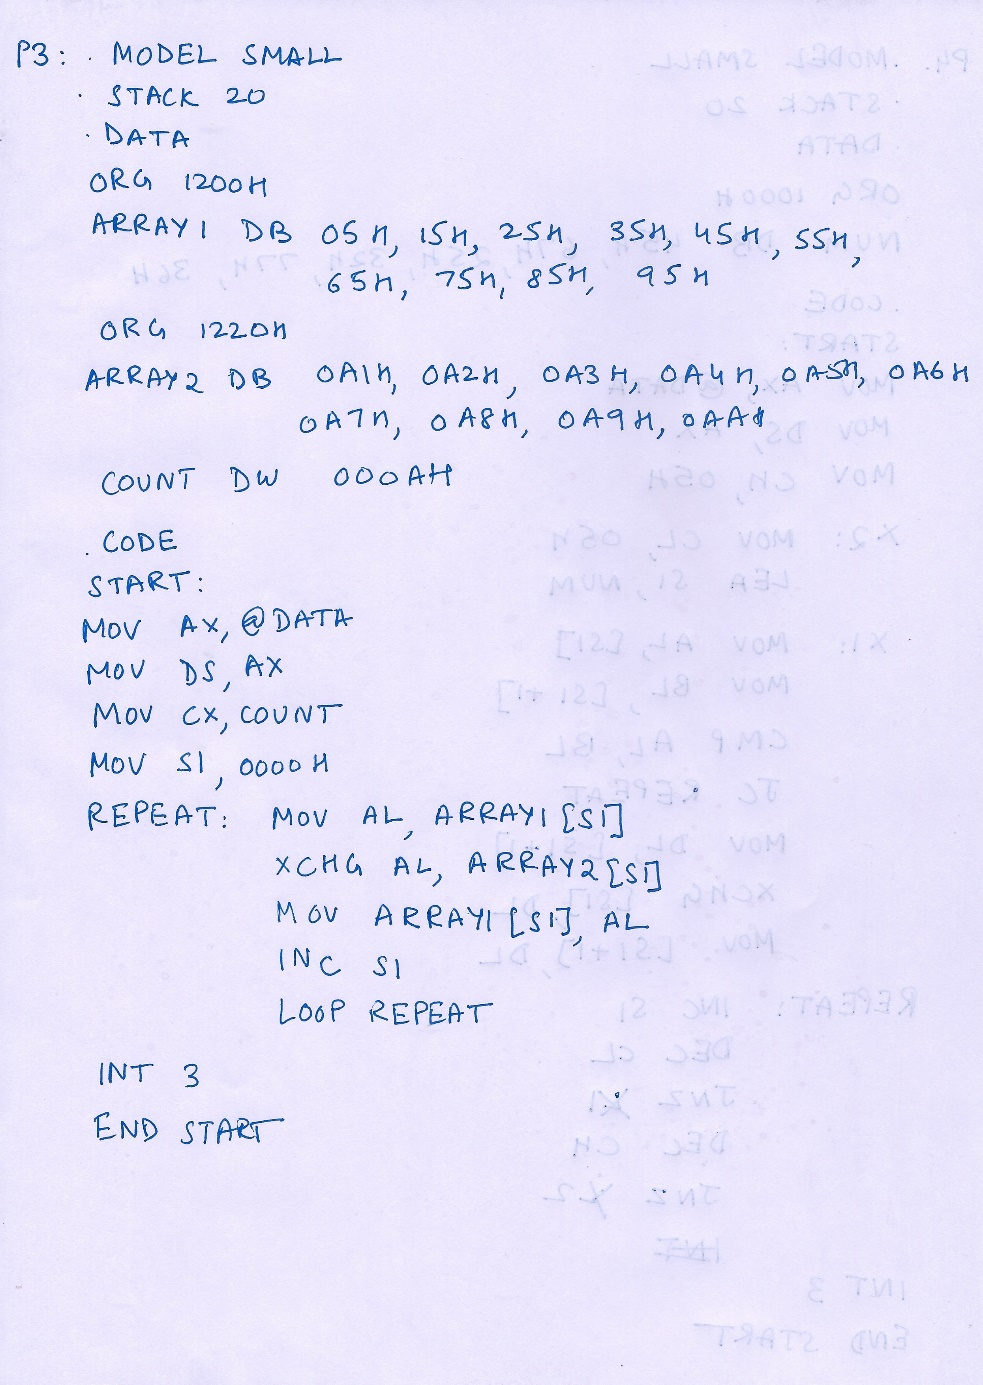 P3: . MODEL SMALL
. STACK 20
. DATA
ORG 1200H
ARRAY1 DB 05H, 15H, 25H, 35H, 45H, 55H,
65H, 75H, 85H, 95H
ORG 1220H
ARRAY2 DB 0A1H, 0A2H, 0A3H, 0A4H, 0A5H, 0A6H
0A7H, 0A8H, 0A9H, 0AAH
COUNT DW 000AH
. CODE
START:
MOV AX, @DATA
MOV DS, AX
MOV CX, COUNT
MOV SI, 0000H
REPEAT: MOV AL, ARRAY1[SI]
XCHG AL, ARRAY2[SI]
MOV ARRAY1[SI], AL
INC SI
LOOP REPEAT
INT 3
END START